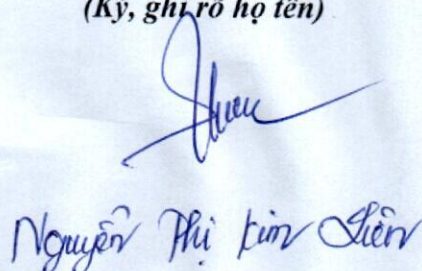 (Ký, ghi rõ họ tên)
Nguyễn Thị Kim Liên